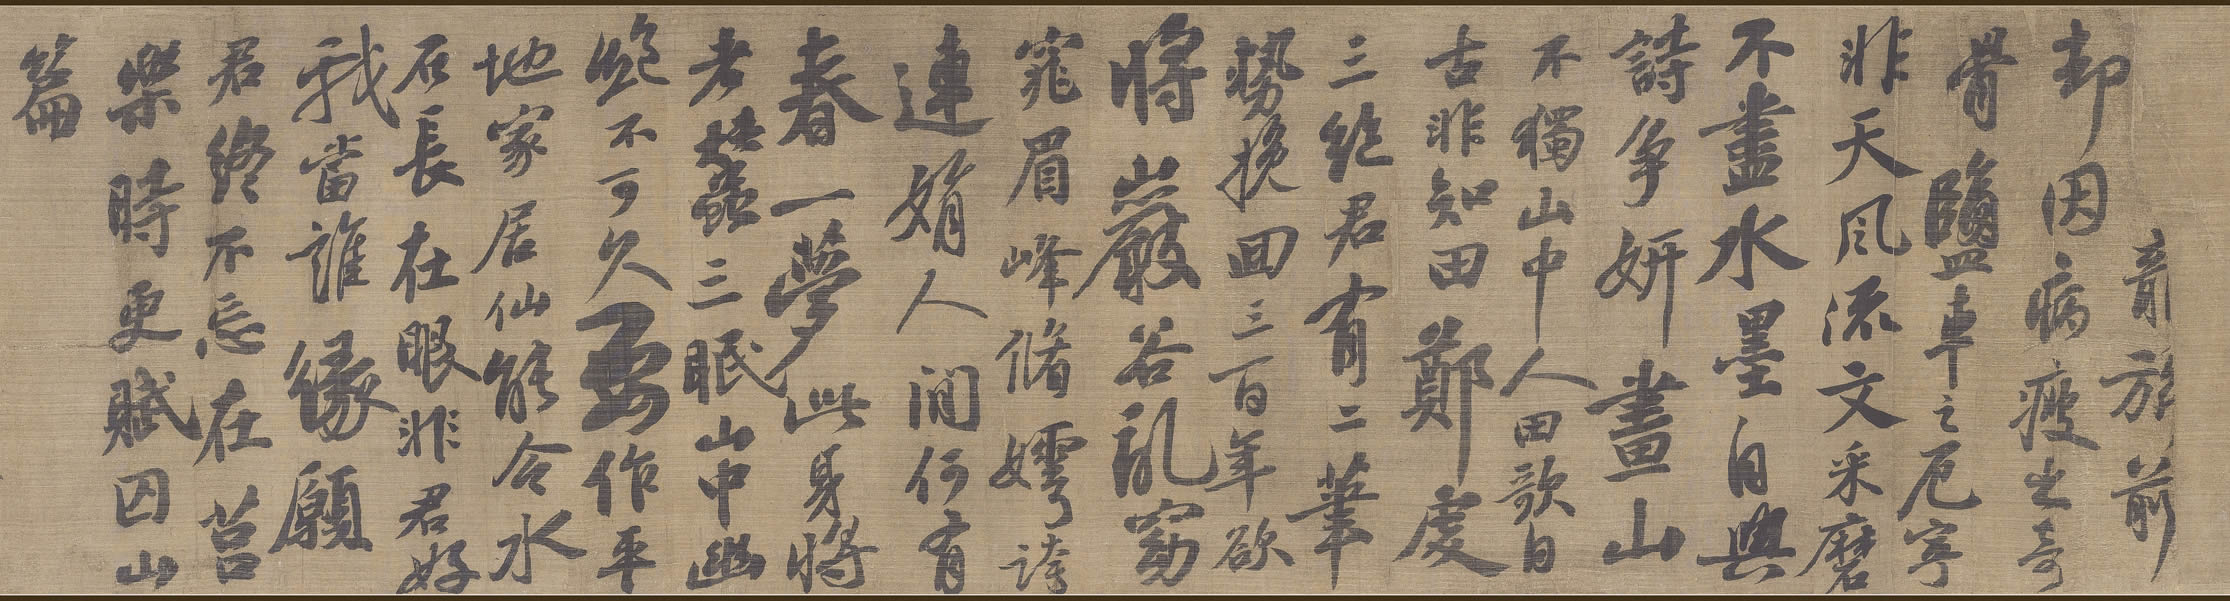 龍旂前
却因病瘦出奇
骨鹽車之厄寧
非天風流文采磨
不盡水墨自與
詩争妍畫山
不獨山中人田歌自
古非知田鄭虔
三絶君有二筆
勢挽回三百年欲
將巖谷亂窈
窕眉峰脩嫮誇
連娟人間何有
春一夢此身將
老蠶三眠山中幽
絶不可久要作平
地家居仙能令水
石長在眼非君好
我當誰緣願
君終不忘在莒
樂時更賦囚山
篇